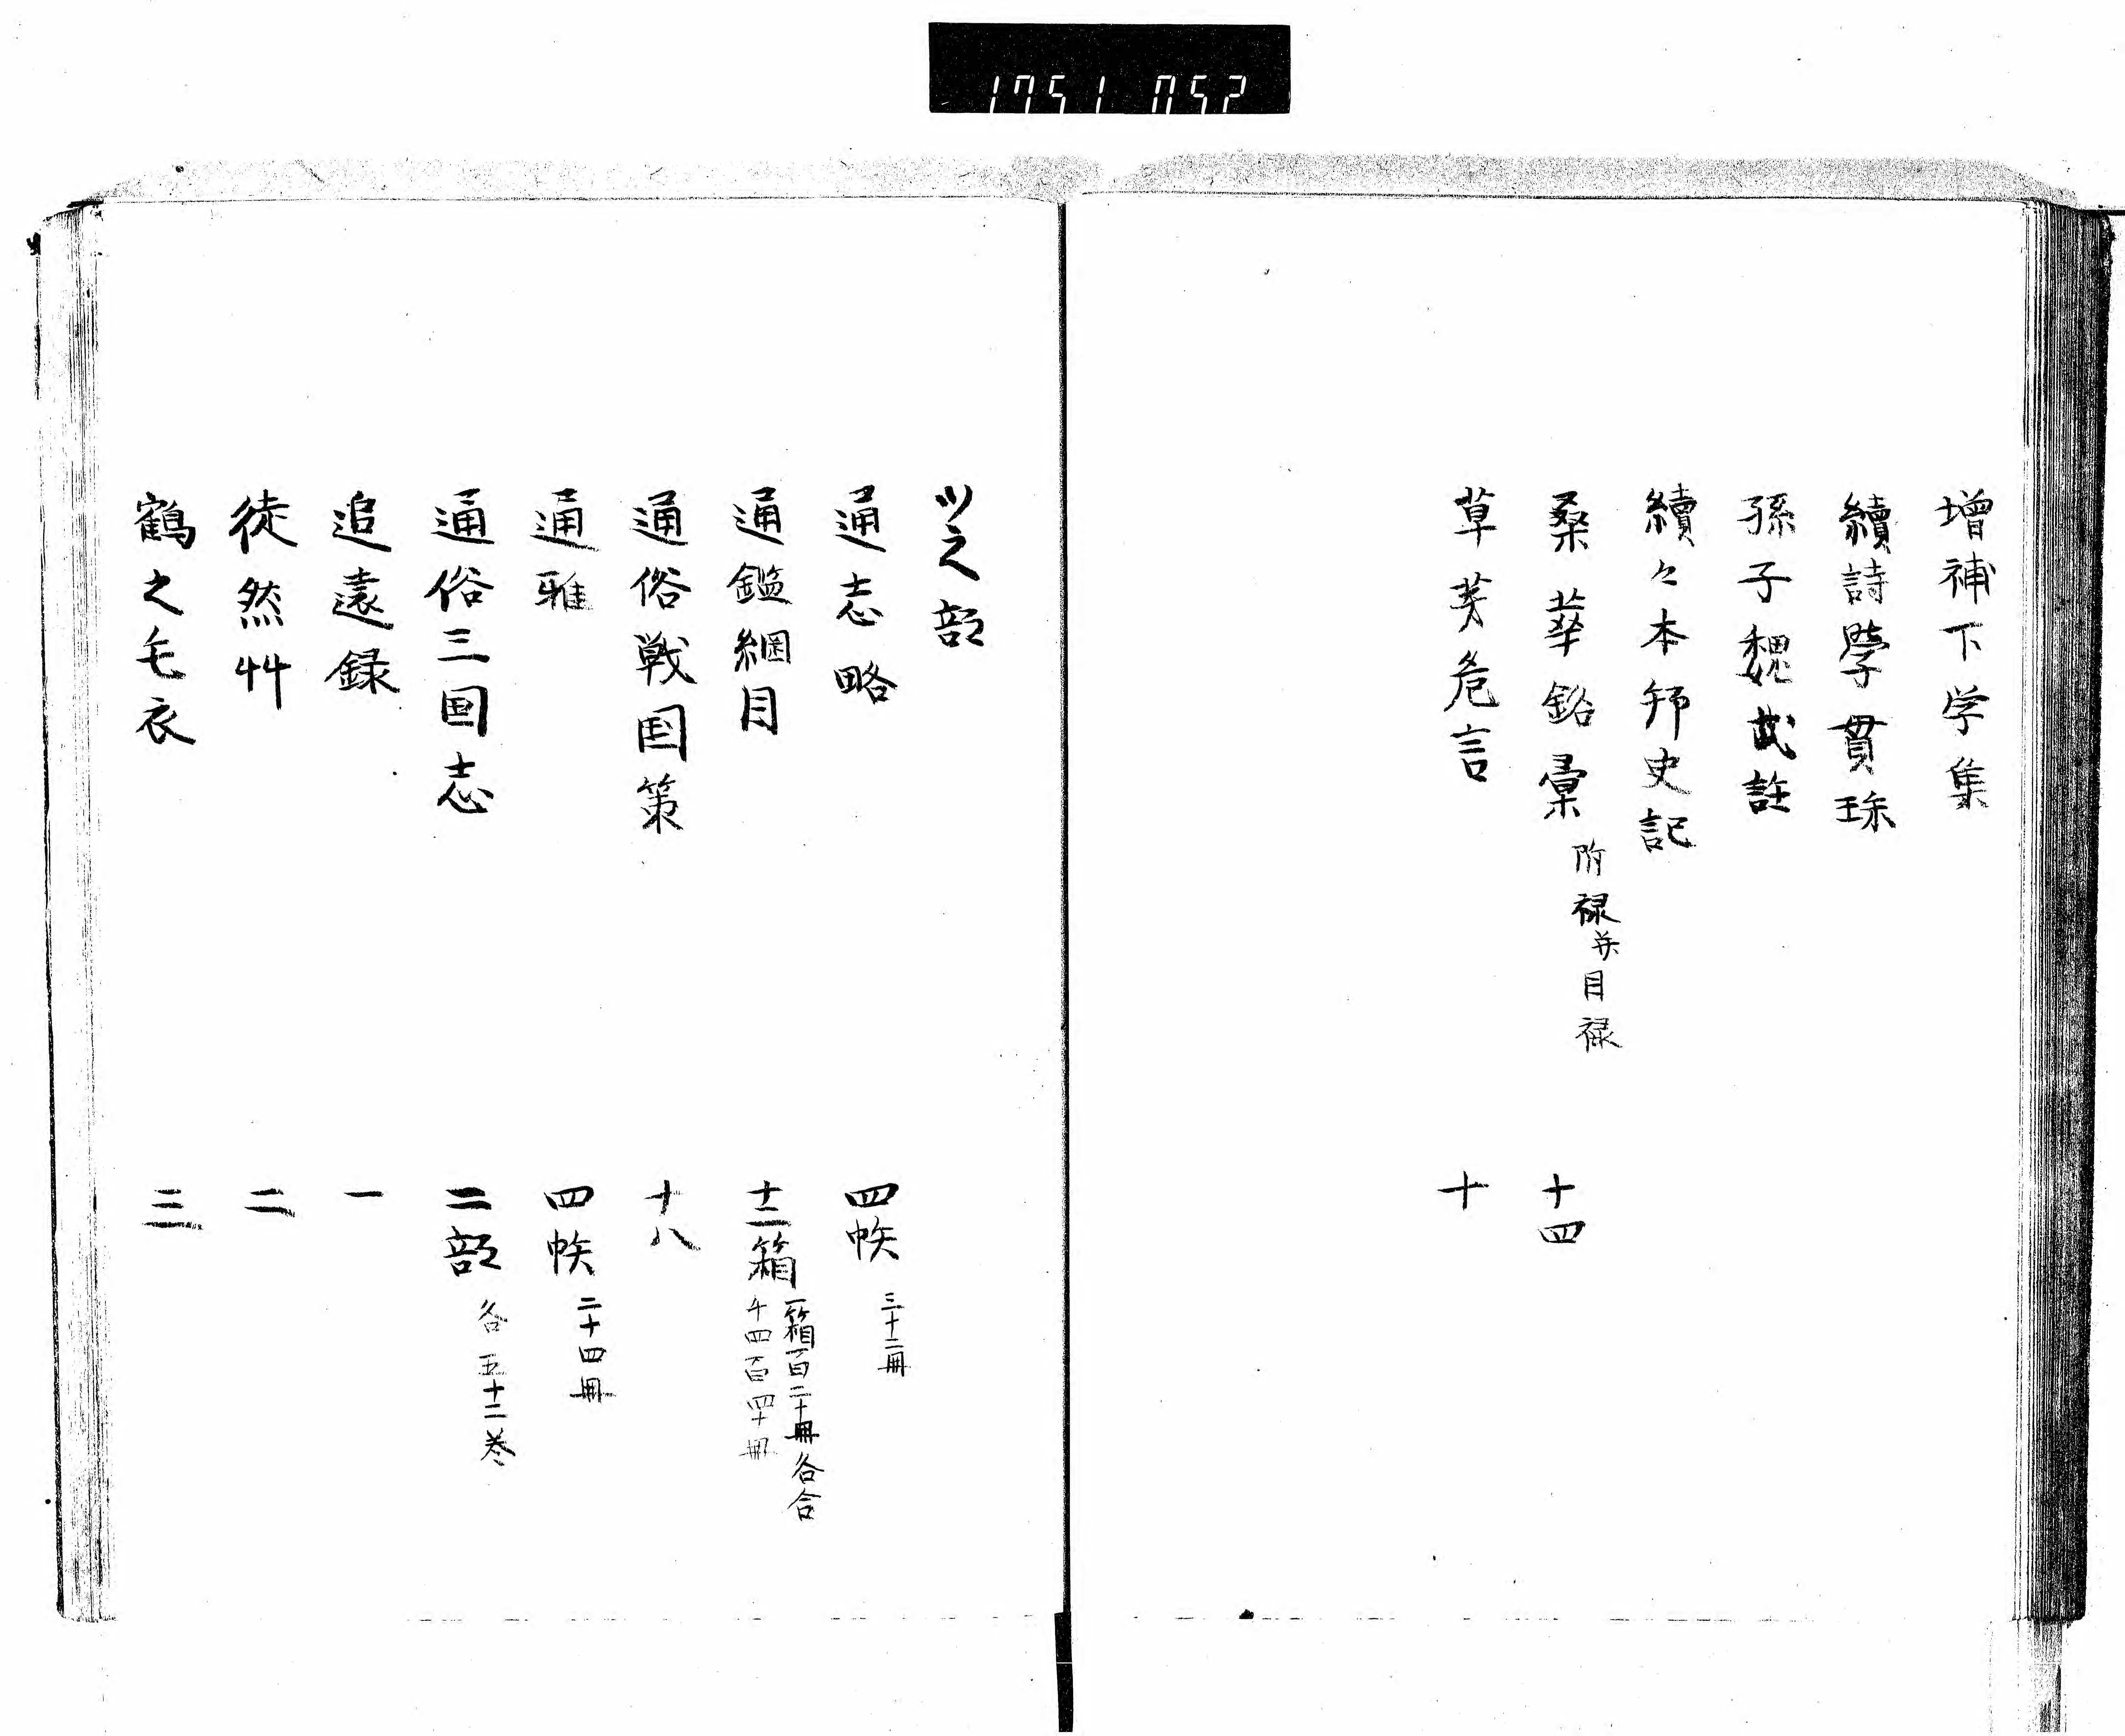 1751 052
増補下学集
續詩學貫珠
孫子魏武註
續々本邦史記
桑華銘彙 附禄并目禄 十四
草茅危言 十
ツ之部
通志略 四帙 三十二冊
通鑑綱目 十二箱 一箱百二十冊各合
千四百四十冊
通俗戦国策 十八
通雅 四帙 二十四冊
通俗三国志 二部 各五十二巻
追遠録 一
徒然艸 二
鶴之毛衣 三